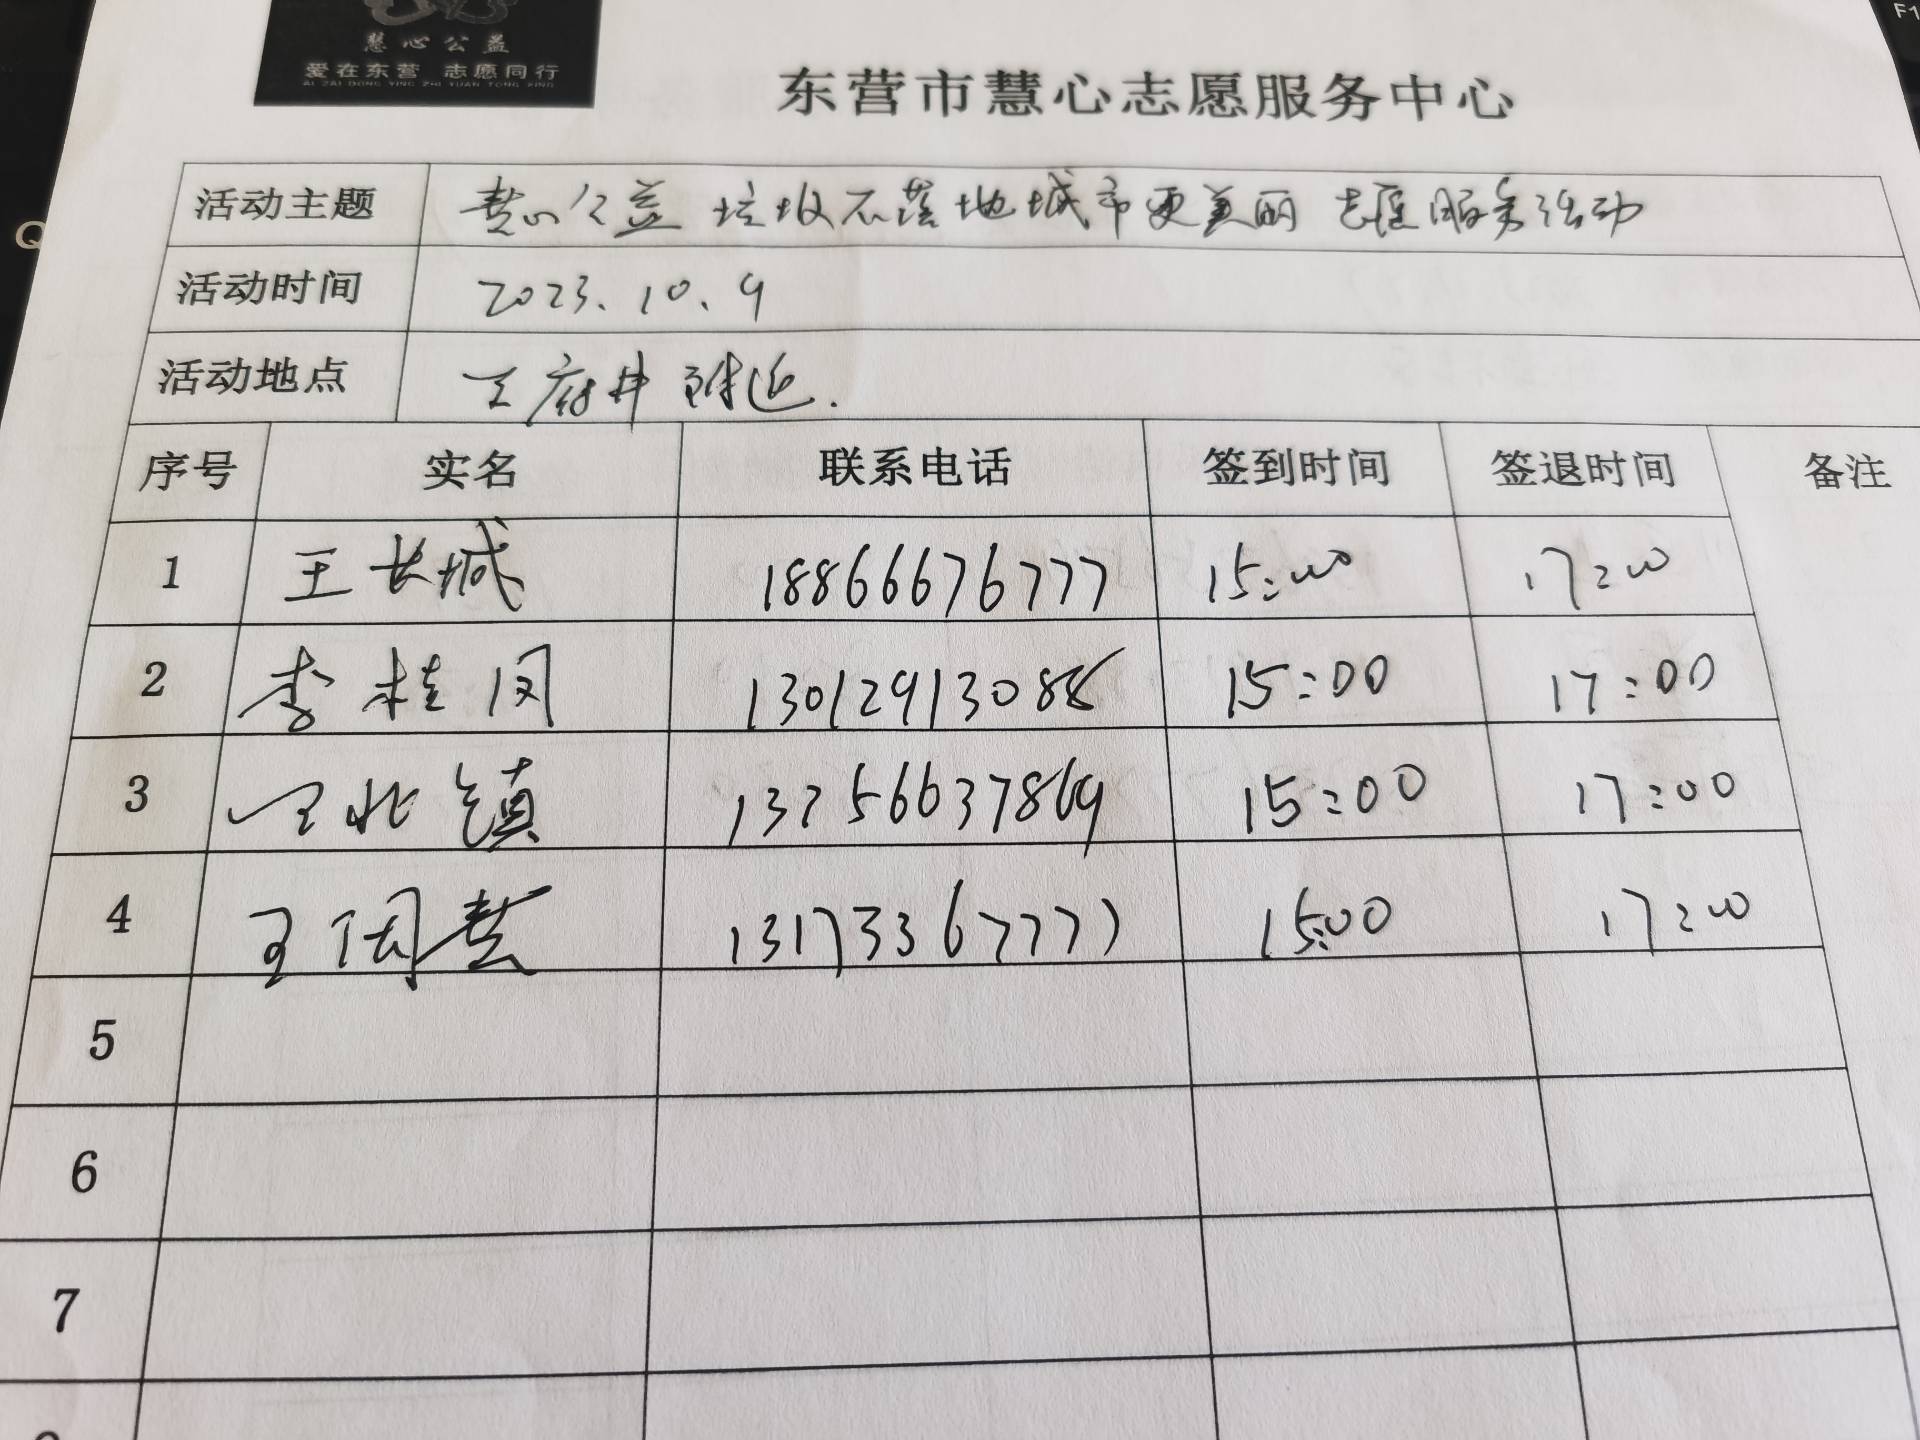 慧心公益
爱在东营 志愿同行
AI ZAI DONG YING ZHI YUAN TONG XING
东营市慧心志愿服务中心
活动主题 慧心公益 垃圾不落地城市更美丽 志愿服务活动
活动时间 2023.10.9
活动地点 王府井附近.
序号 实名 联系电话 签到时间 签退时间 备注
1 王长城 18866676777 15:00 17:00
2 李桂闵 15:00 17:00
3 王北镇 15:00 17:00
4 王国慧 13173367777 15:00 17:00
5
6
7
F1
Q